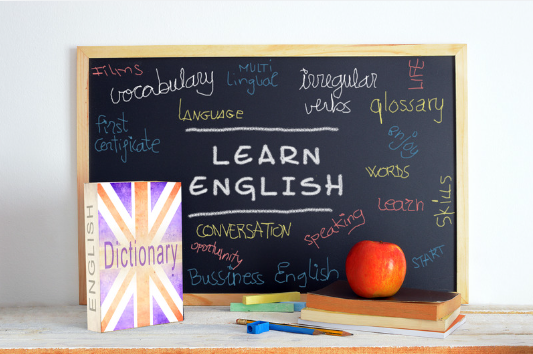 Films
vocabulary
MULTI
lingual
irregular
verbs
LIFE
LANGUAGE
glossary
first
certificate
enjoy
LEARN
ENGLISH
WORDS
Learn
SKILLS
CONVERSATION
speaking
opportunity
START
Bussiness English
ENGLISH
Dictionary